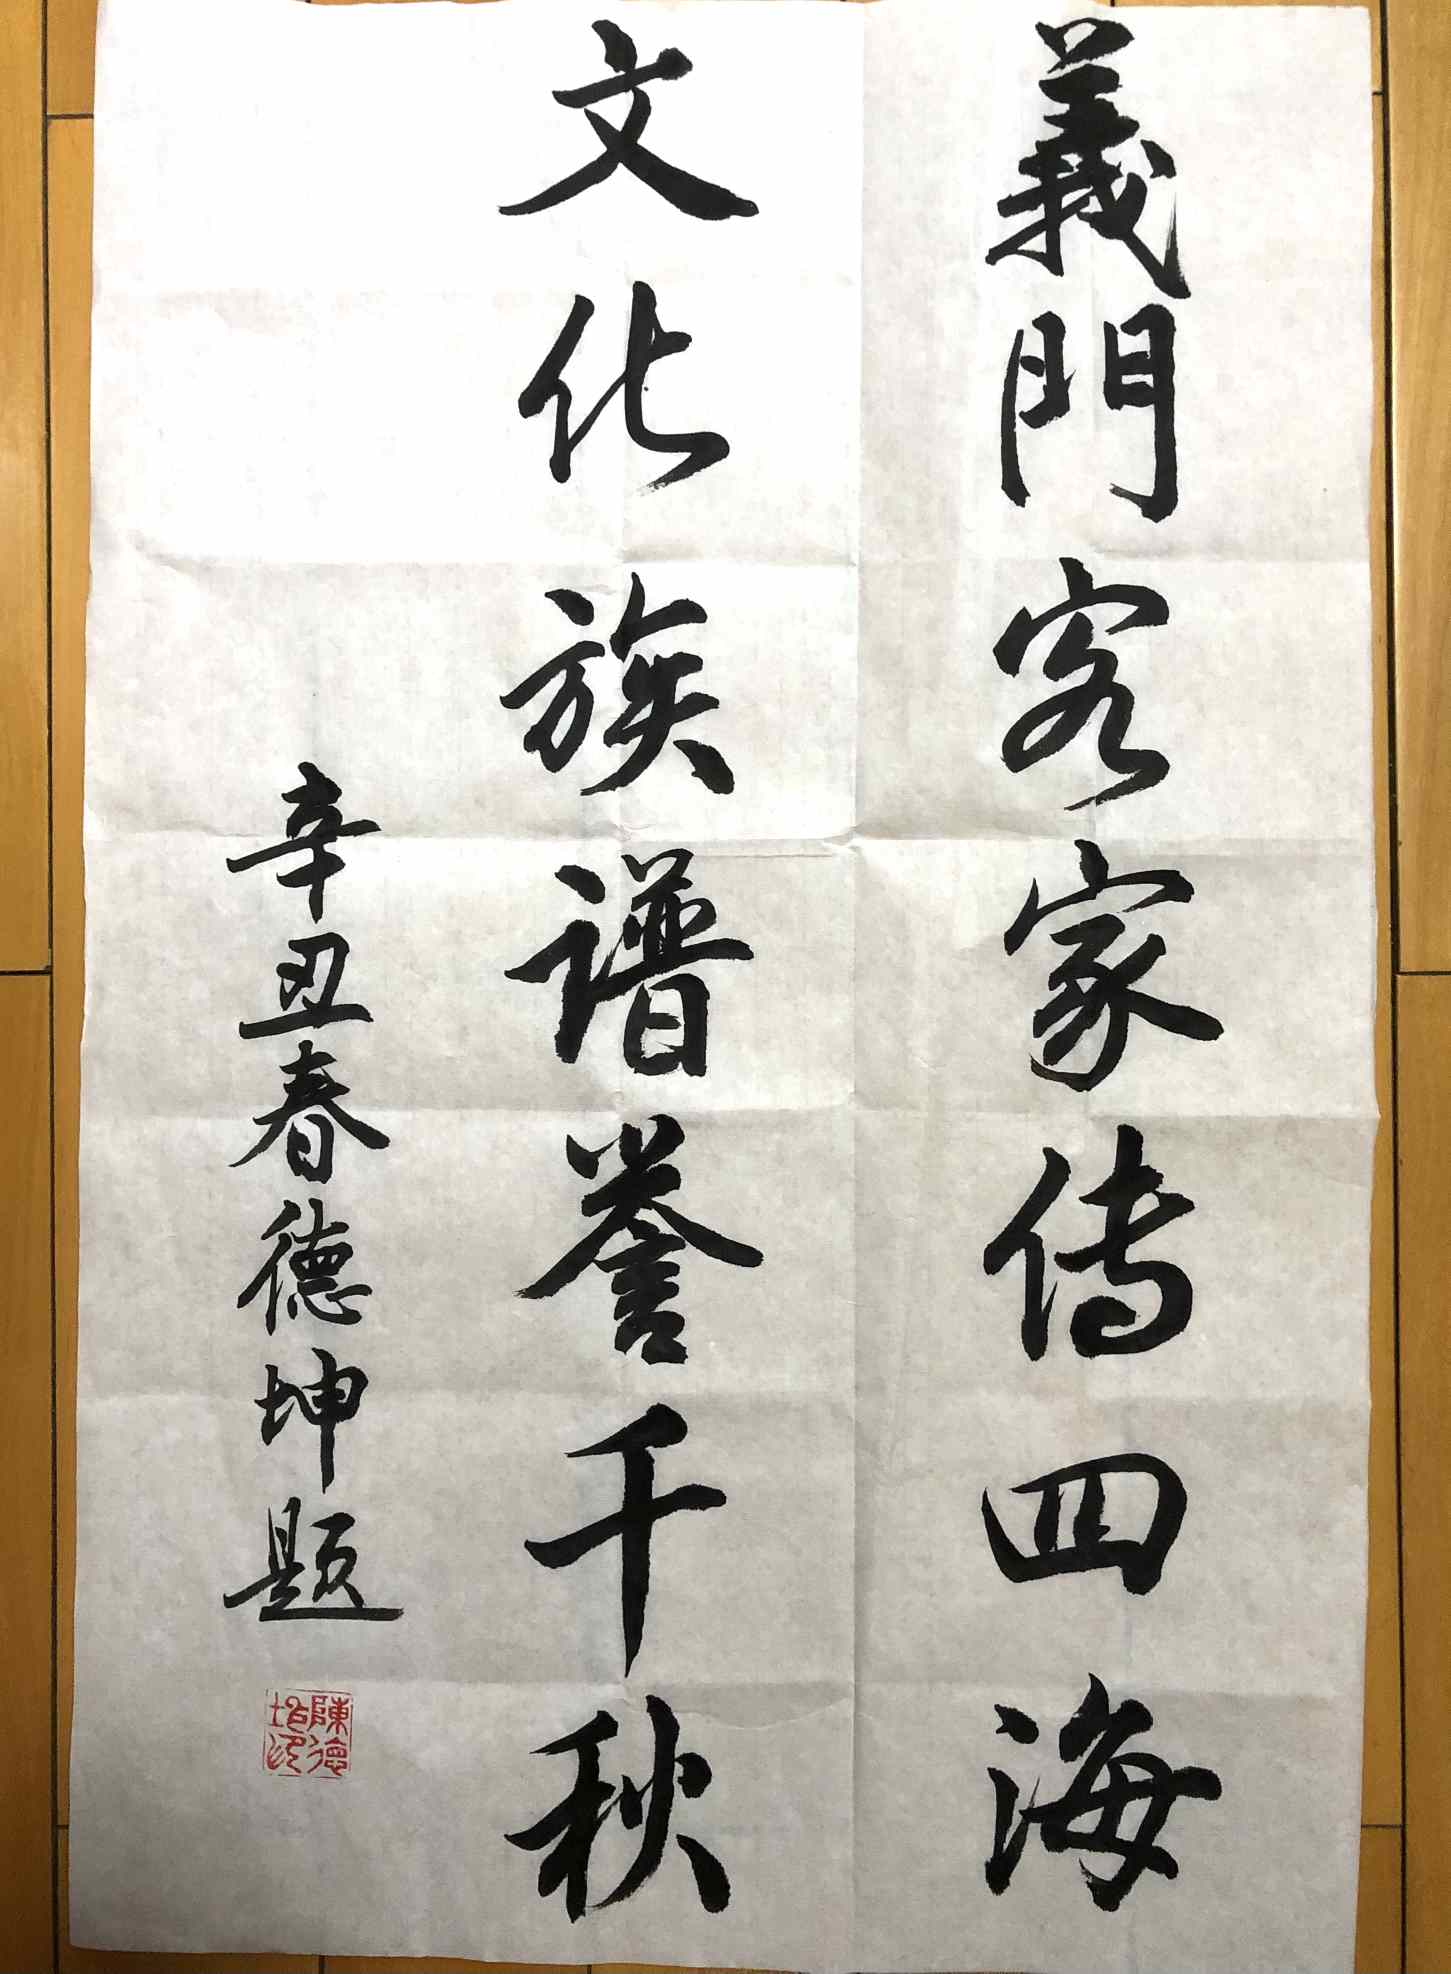 義門客家傳四海
文化族譜譽千秋
辛丑春德坤題
陳德坤印